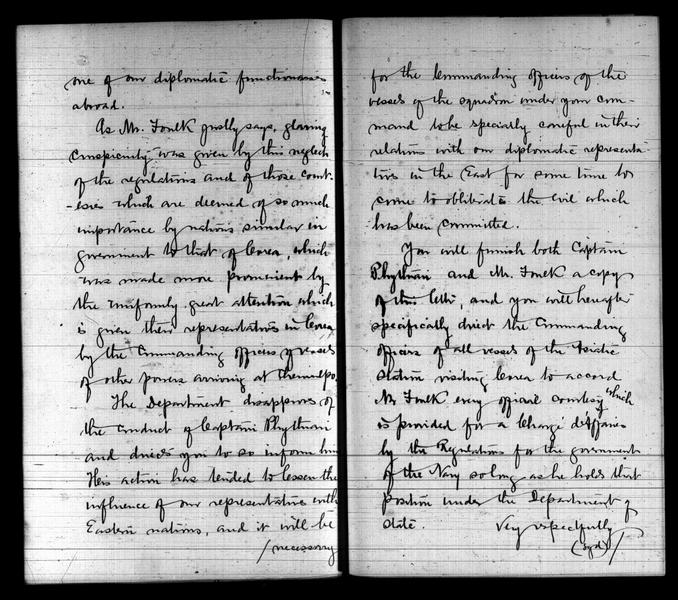 one of our diplomatic functionaries
abroad.
As Mr. Foulk justly says, glaring
conspicuity was given by this neglect
of the regulations and of those court-
-esies which are deemed of so much
importance by nations similar in
government to that of Corea, which
was made more prominent by
the uniformly great attention which
is given their representatives in Corea
by the Commanding officers of vessels
of other powers arriving at Chemulpo.
The Department disapproves of
the conduct of Captain Phythian
and directs you to so inform him
His action has tended to lessen the
influence of our representative with
Eastern nations, and it will be
/ necessary
for the Commanding officers of the
vessels of the squadron under your com-
mand to be specially careful in their
relations with our diplomatic representa-
tives in the East for some time to
come to obliterate the evil which
has been committed.
You will furnish both Captain
Phythian and Mr. Foulk a copy
of this letter, and you will hereafter
specifically direct the Commanding
officers of all vessels of the Asiatic
Station visiting Corea to accord
Mr Foulk every official courtesy which
is provided for a Chargé d'Affaires
by the Regulations for the government
of the Navy so long as he holds that
position under the Department of
State. Very respectfully
(sgd) /